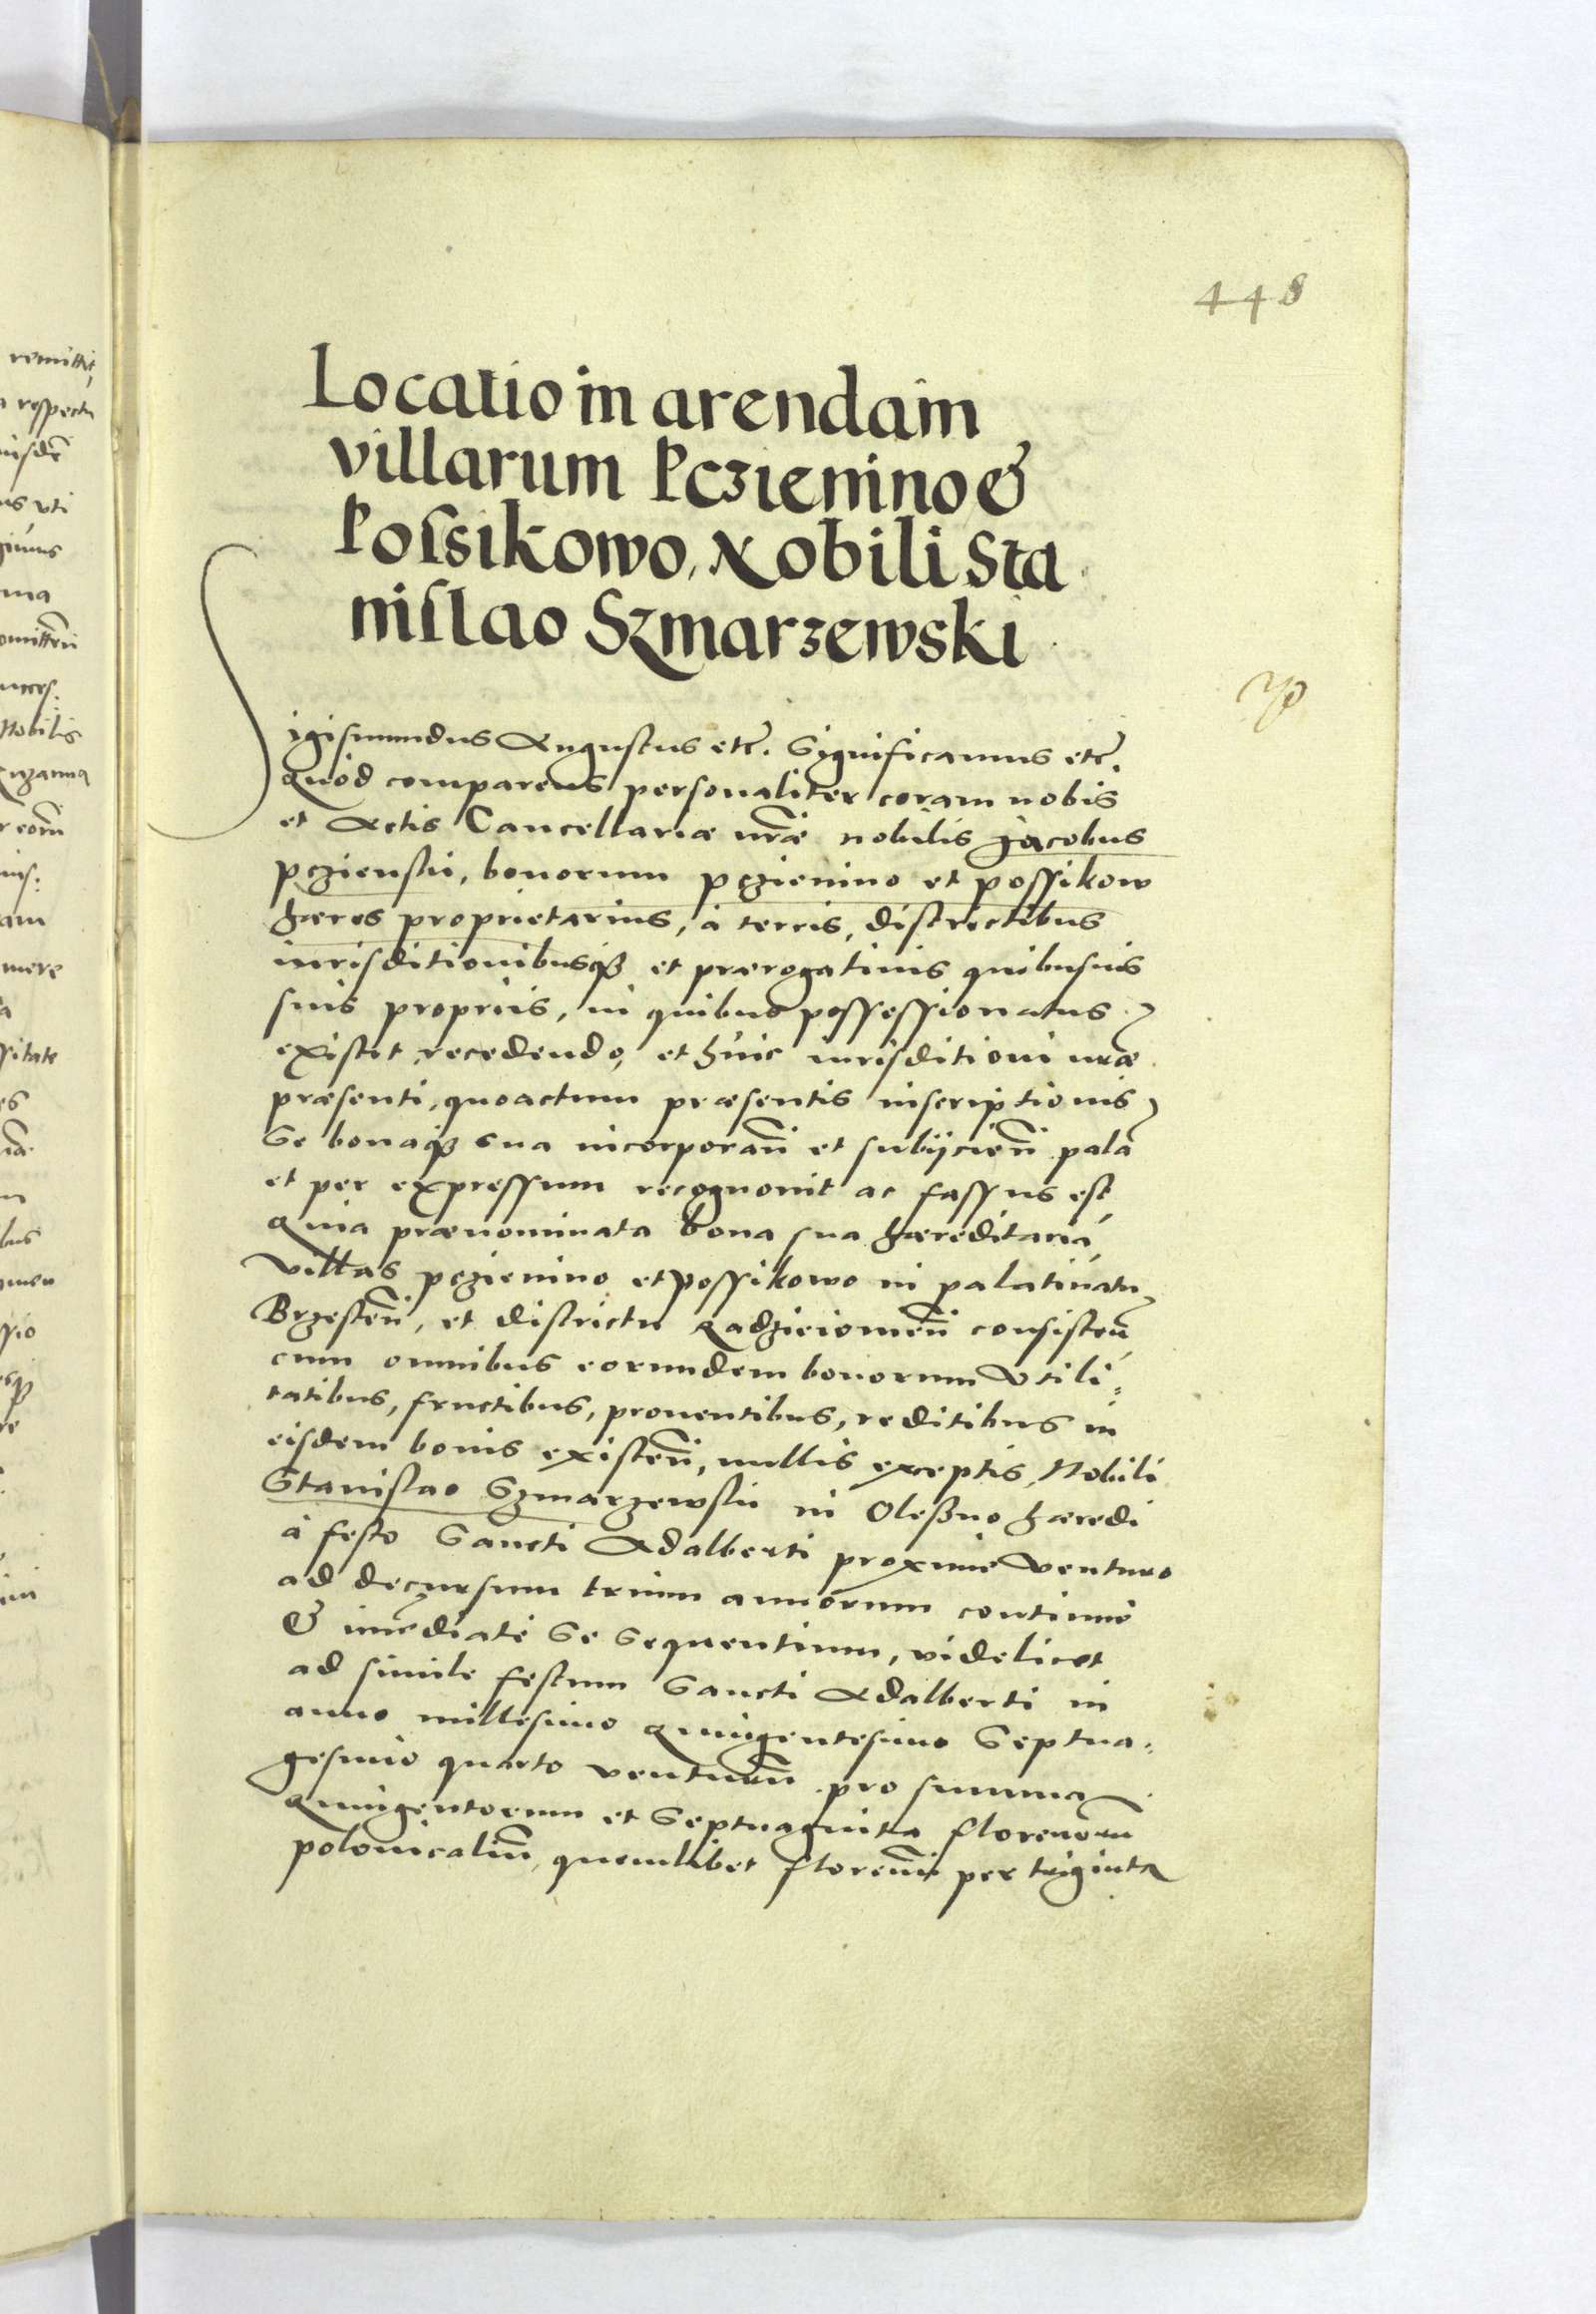 448
Locatio in arendam
villarum Pczienino &
Possikowo, Nobili Sta
nislao Szmarzewski
Sigismundus Augustus etc. Significamus etc.
Quòd comparens personaliter coram nobis
et Actis Cancellariæ nr̃æ nobilis Jacobus
Pczienski, bonorum Pczienino et Possikow
hæres proprietarius, à terris, districtibus
iurisditionibusq₃ et prærogatiuis quibusuis
suis proprijs, in quibus possessionatus
existit recedendo, et huic iurisditioni nr̃æ
præsenti, quo actum præsentis inscriptionis
Se bonaq₃ sua incorporan̄ et subijcien̄ palã
et per expressum recognouit ac fassus est,
Quia prænominata bona sua hæreditaria,
Villas Pczienino et Possikowo in palatinatu
Brzesten̄, et districtu Radzieiomen̄ consisten̄,
cum omnibus eorundem bonorum Vtili=
tatibus, fructibus, prouentibus, reditibus in
eisdem bonis existen̄, nullis exceptis, Nobili
Stanislao Szmarzewski in Olessno hæredi
à festo Sancti Adalberti proxime Venturo
ad decursum trium annorum continuè
& im̃ediatè Se Sequentium, videlicet
ad simile festum Sancti Adalberti in
anno millesimo Quingentesimo Septua=
gesimo quarto venturum̄ pro summa
Quingentorum et Septuaginta florenorum̄
polonicaliu̅, quemlibet florenu̅ per triginta